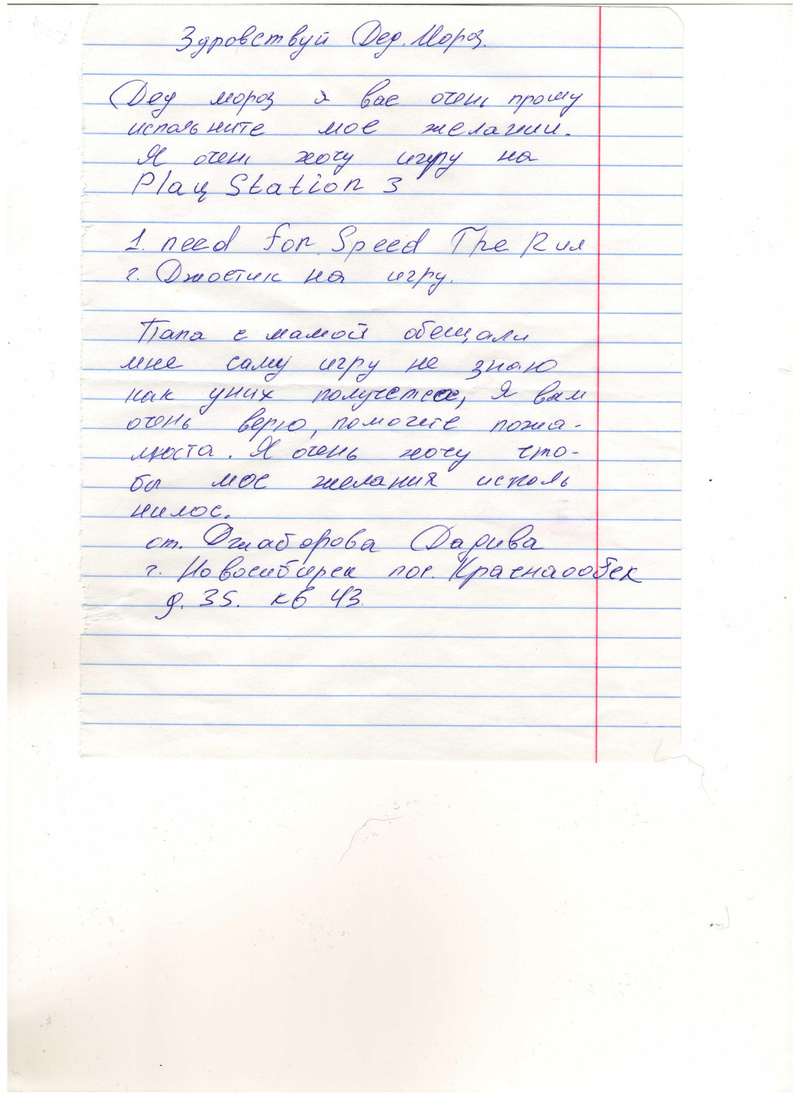 Здравствуй Дед.Мороз.
Дед мороз я вас очень прошу
испольните мое желании.
Я очень хочу игру на
Play Station 3
1. need for Speed The Run
2. Джостик на игру.
Папа с мамой обещали
мне саму игру не знаю
как уних получется, Я вам
очень верю, помогите пожа-
люста. Я очень хочу что-
бы мое желания исполь
нилос.
от. Джаборова Дадива
г. Новосибирск пос. Краснаообск
д. 35. кв 43.